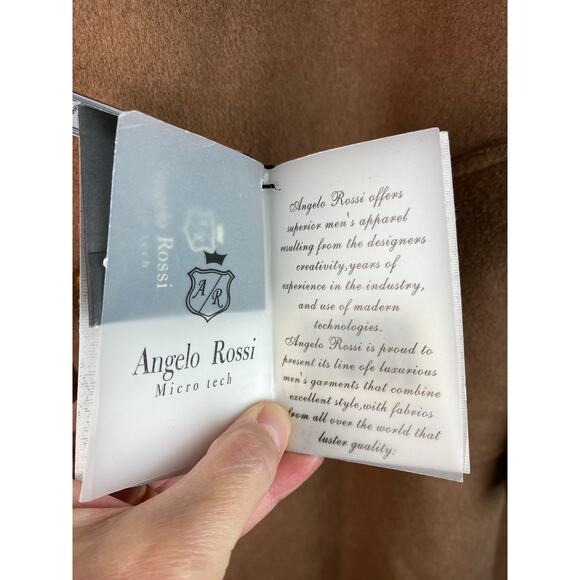 A R
Angelo Rossi
Micro tech
Angelo Rossi offers
superior men's apparel
resulting from the designers
creativity,years of
experience in the industry,
and use of madern
technologies.
Angelo Rossi is proud to
present its line ofe luxurious
men's garments that combine
excellent style,with fabrios
from all over the world that
luster guality:
Rossi
tech